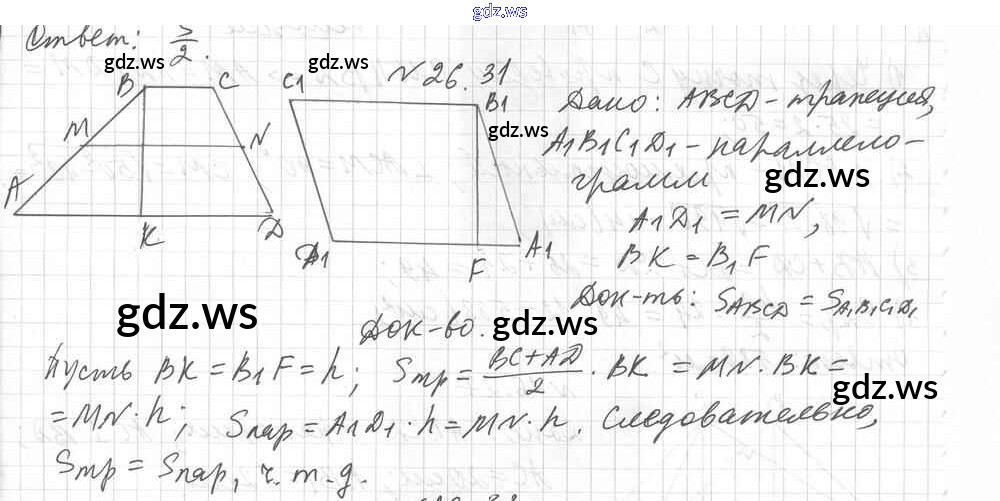 gdz.ws
Ответ: 5/2.
gdz.ws
gdz.ws
N 26.31
B C C1 B1
gdz.ws
M N
A K D D1 F A1
Дано: ABCD - трапеция,
A1B1C1D1 - параллело-
грамм
gdz.ws
A1D1 = MN,
BK = B1F
Док-ть: SABCD = SA1B1C1D1
gdz.ws
Док-во.
gdz.ws
Пусть BK = B1F = h; Sтр = (BC+AD)/2 · BK = MN · BK =
gdz.ws
= MN · h; Sпар = A1D1 · h = MN · h. Следовательно,
Sтр = Sпар, ч.т.д.